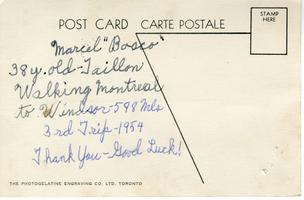 POST CARD CARTE POSTALE
STAMP
HERE
"Marcel" Bosco
38 y. old - Taillon
Walking Montreal
to Windsor - 598 Mls
3rd Trip - 1954
Thank You - Good Luck!
THE PHOTOGELATINE ENGRAVING CO. LTD. TORONTO